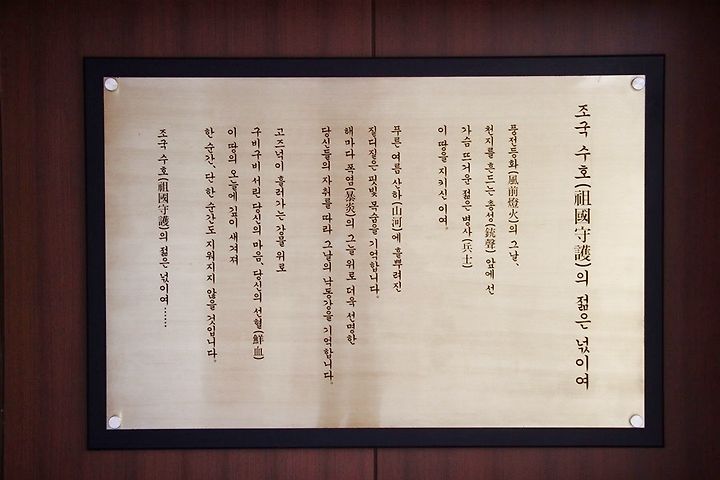 조국 수호(祖國守護)의 젊은 넋이여
풍전등화(風前燈火)의 그날,
천지를 흔드는 총성(銃聲) 앞에 선
가슴 뜨거운 젊은 병사(兵士)
이 땅을 지키신 이여.
푸른 여름 산하(山河)에 흩뿌려진
짙디짙은 핏빛 목숨을 기억합니다.
해마다 폭염(暴炎)의 그늘 위로 더욱 선명한
당신들의 자취를 따라 그날의 낙동강을 기억합니다.
고즈넉이 흘러가는 강물 위로
구비구비 서린 당신의 마음, 당신의 선혈(鮮血)
이 땅의 오늘에 깊이 새겨져
한 순간, 단 한 순간도 지워지지 않을 것입니다.
조국 수호(祖國守護)의 젊은 넋이여……